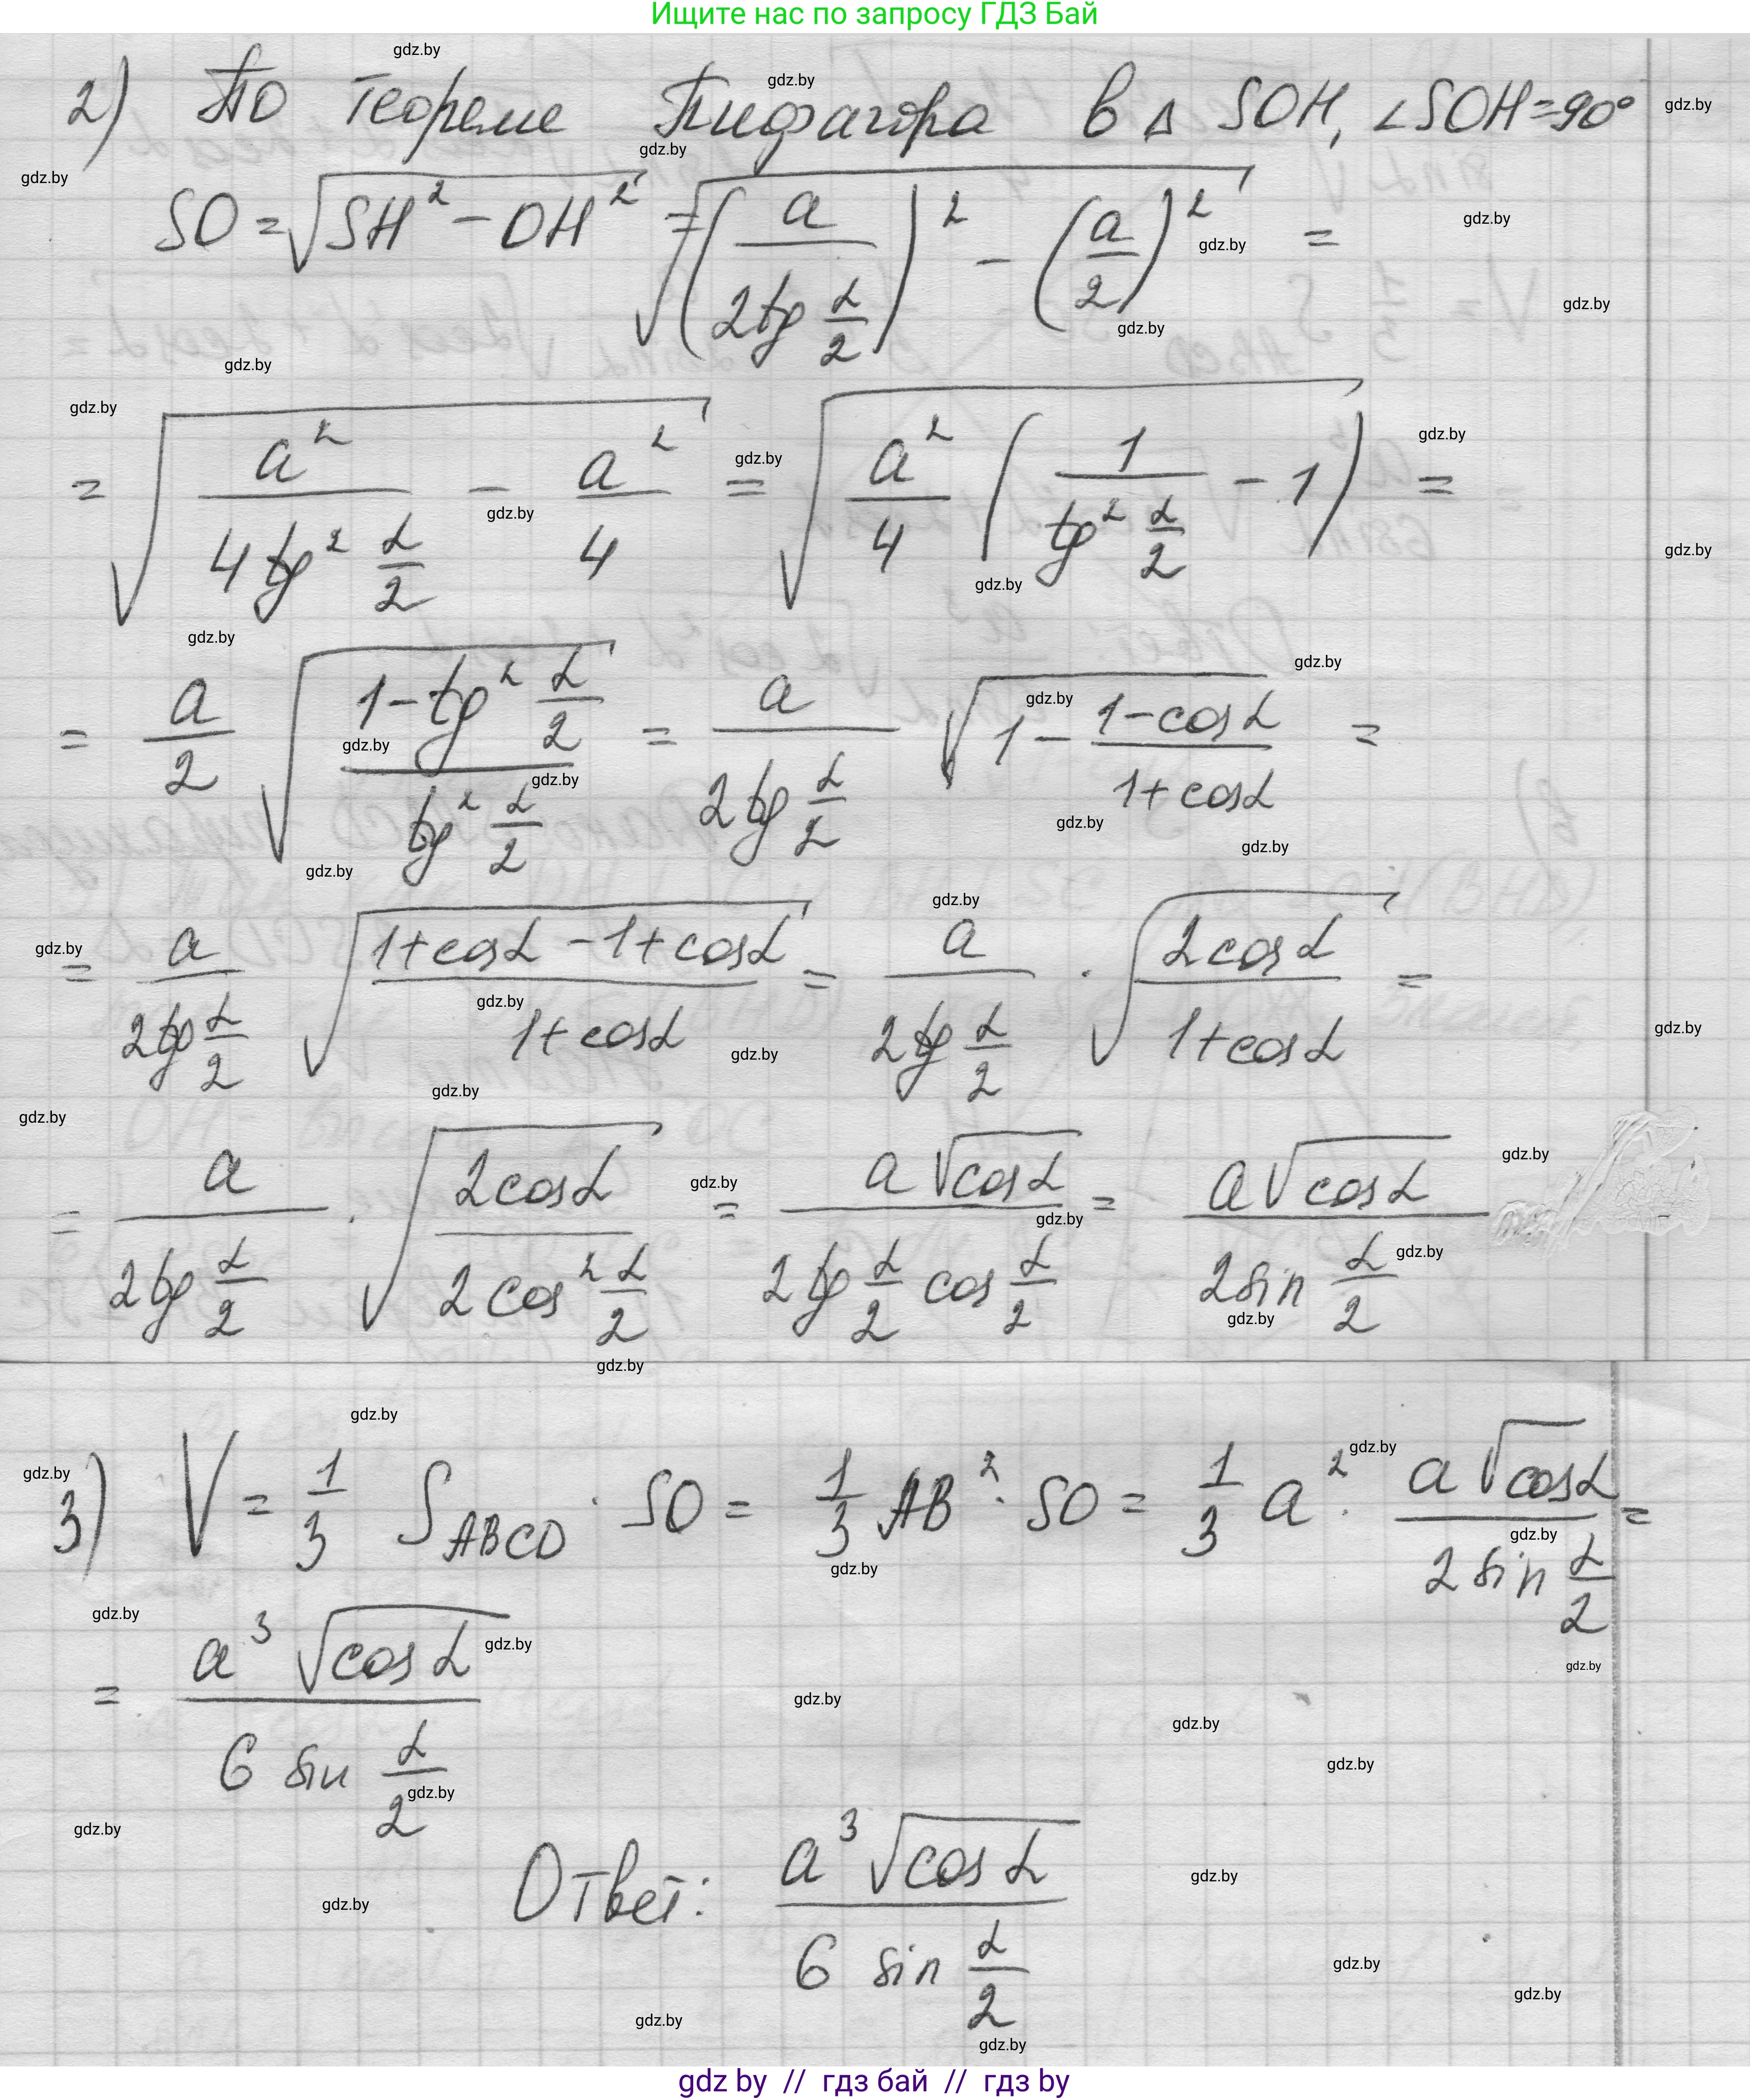 Ищите нас по запросу ГДЗ Бай
2) По теореме Пифагора в Δ SOH, ∠SOH=90°
SO = √(SH² − OH²) = √((a/(2tg α/2))² − (a/2)²) =
= √(a²/(4tg² α/2) − a²/4) = √(a²/4 (1/(tg² α/2) − 1)) =
= a/2 √((1−tg² α/2)/(tg² α/2)) = a/(2tg α/2) √(1 − (1−cosα)/(1+cosα)) =
= a/(2tg α/2) √((1+cosα −1+cosα)/(1+cosα)) = a/(2tg α/2) · √(2cosα/(1+cosα)) =
= a/(2tg α/2) · √(2cosα/(2cos² α/2)) = a√cosα/(2tg α/2 cos α/2) = a√cosα/(2sin α/2)
3) V = 1/3 S_ABCD · SO = 1/3 AB² · SO = 1/3 a² · a√cosα/(2sin α/2) =
= a³√cosα/(6 sin α/2)
Ответ: a³√cosα/(6 sin α/2)
gdz by // гдз бай // гдз by